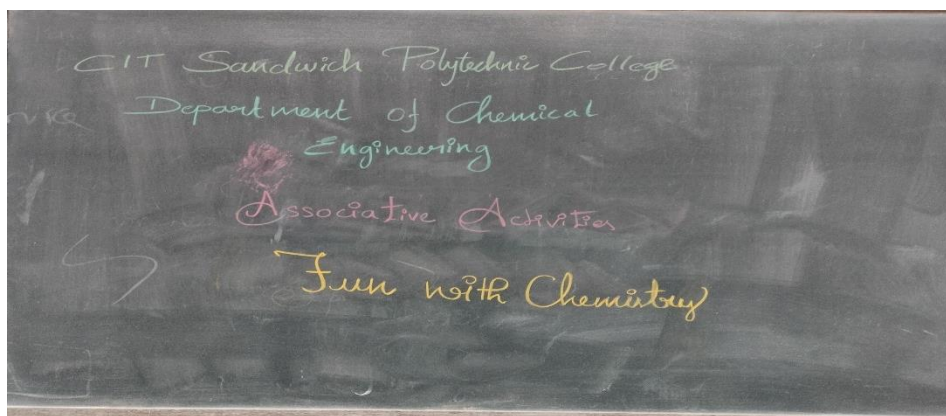 CIT Sandwich Polytechnic College
Department of Chemical
Engineering
Associative Activities
Fun with Chemistry